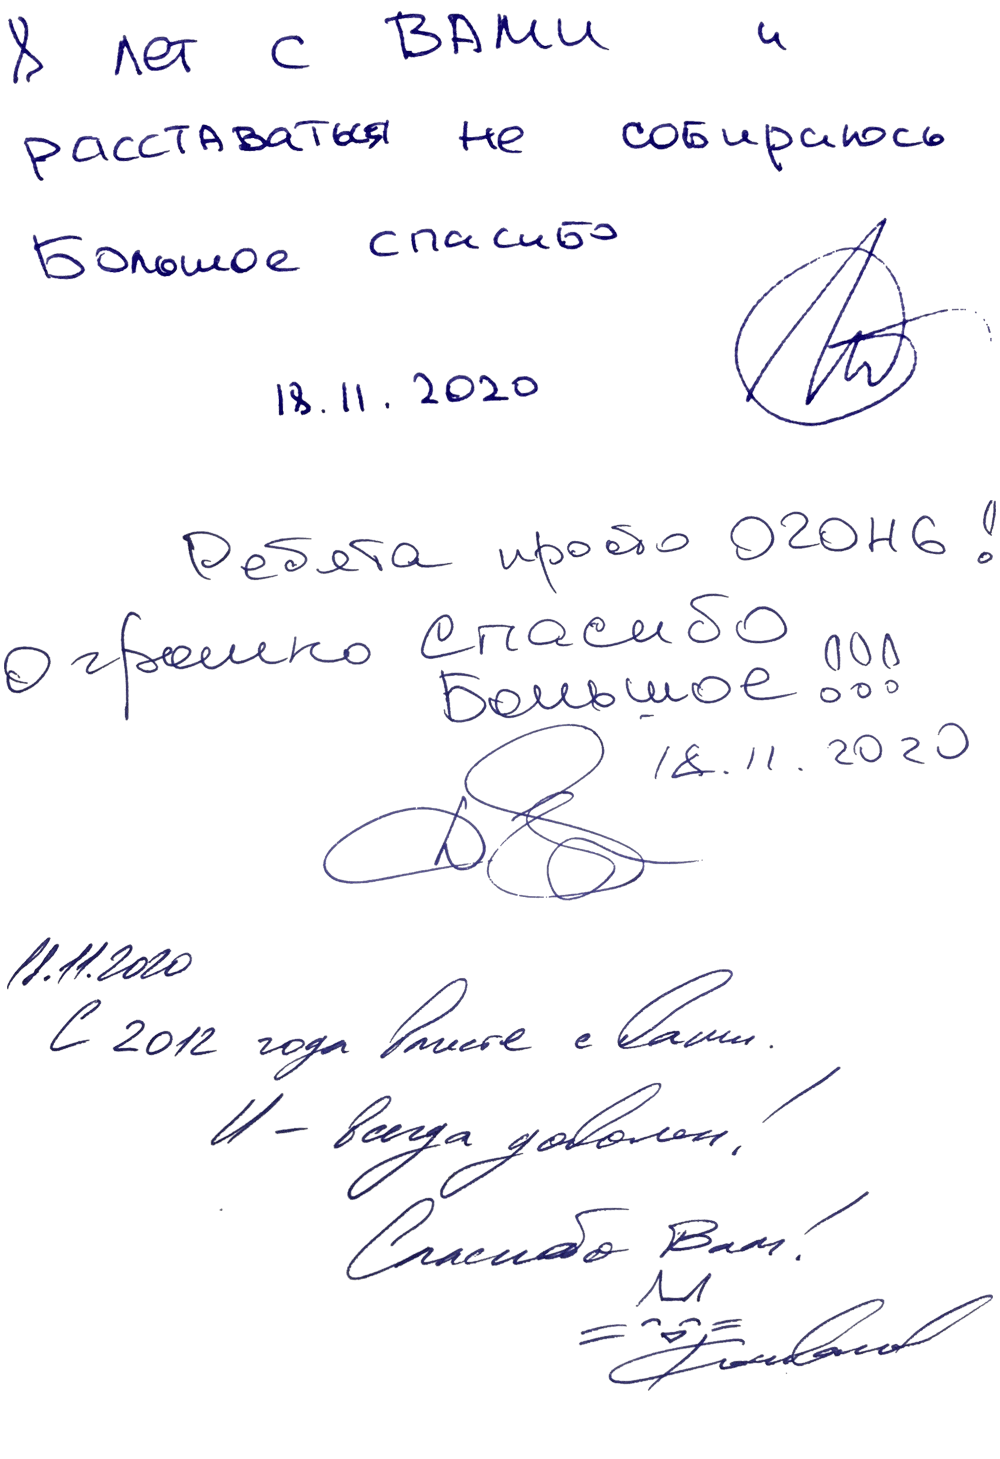 8 лет с ВАМИ и
расставаться не собираюсь
Большое спасибо
18.11.2020
Ребята просто ОГОНЬ!
Огромко Спасибо
Большое!!!
18.11.2020
11.11.2020
С 2012 года вместе с Вами.
И - всегда доволен!
Спасибо Вам!